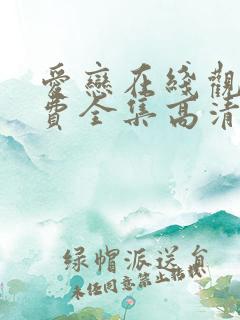 愛戀在綫觀
費全集高清
绿帽派送員
未经同意禁止转载